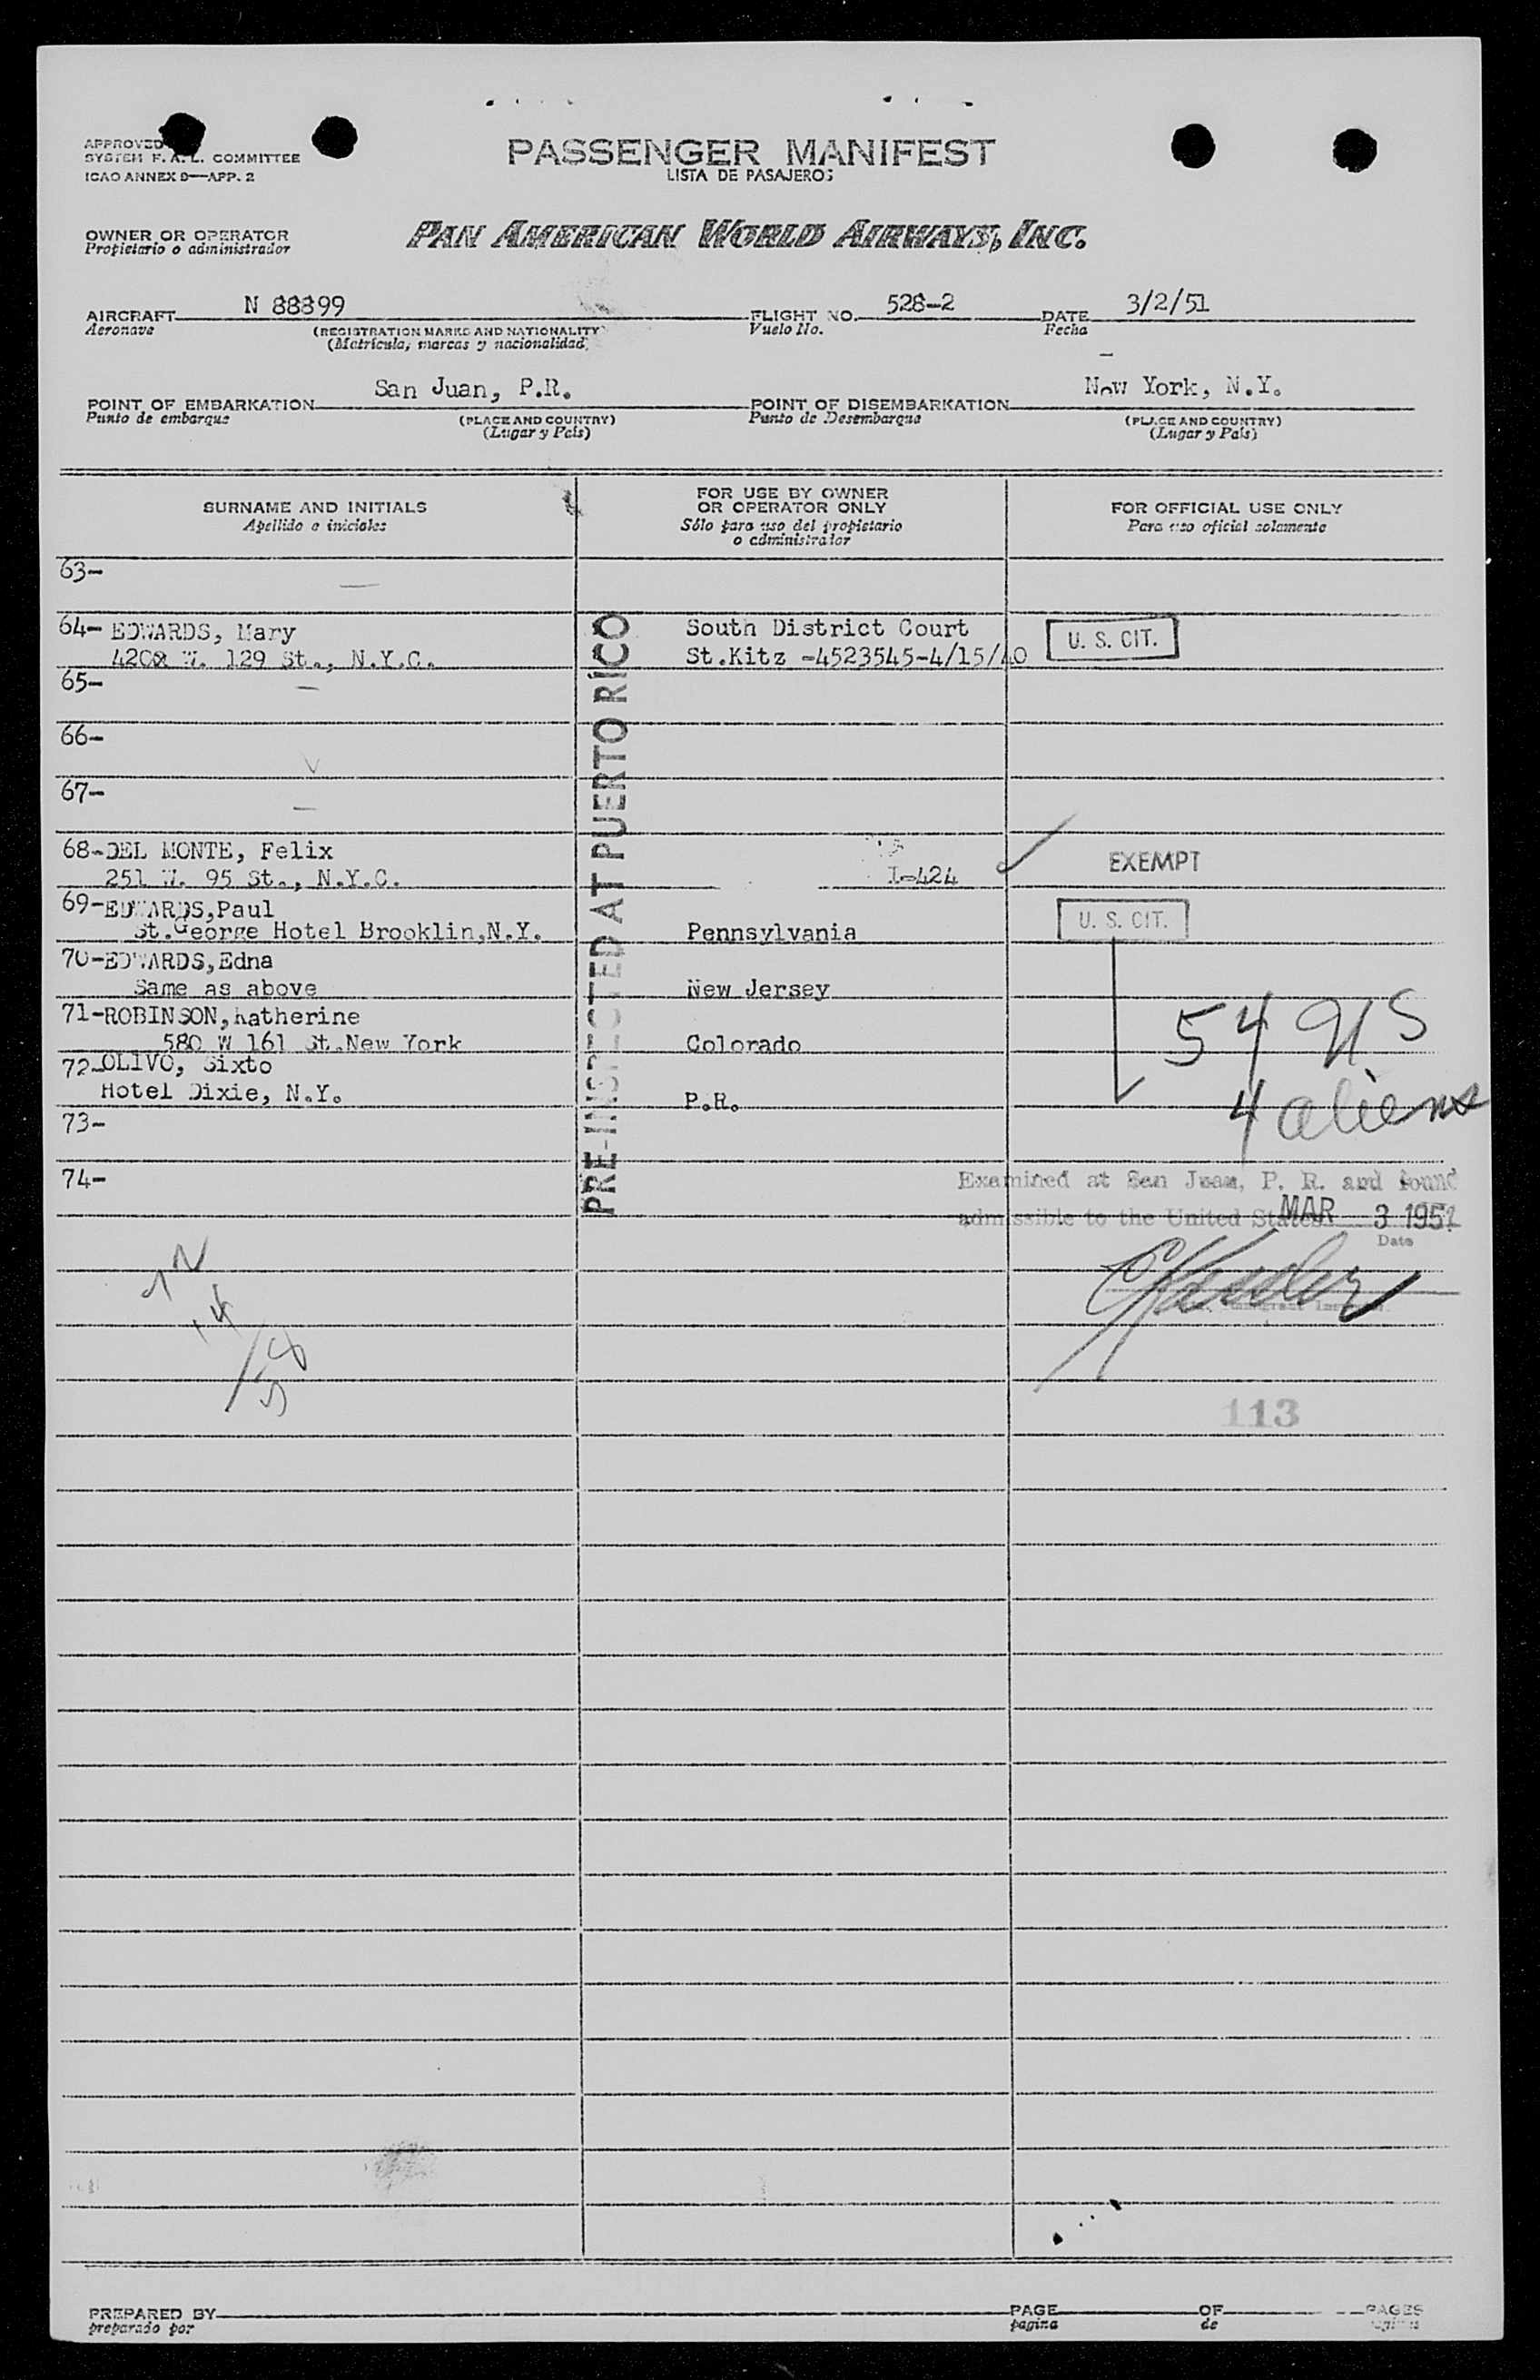 APPROVED
SYSTEM F. A. L. COMMITTEE
ICAO ANNEX 9—APP. 2
PASSENGER MANIFEST
LISTA DE PASAJEROS
OWNER OR OPERATOR
Propietario o administrador
PAN AMERICAN WORLD AIRWAYS, INC.
AIRCRAFT N 88899
Aeronave
(REGISTRATION MARKS AND NATIONALITY)
(Matrícula, marcas y nacionalidad)
FLIGHT NO. 528-2
Vuelo No.
DATE 3/2/51
Fecha
POINT OF EMBARKATION San Juan, P.R.
Punto de embarque
(PLACE AND COUNTRY)
(Lugar y País)
POINT OF DISEMBARKATION New York, N.Y.
Punto de Desembarque
(PLACE AND COUNTRY)
(Lugar y País)
SURNAME AND INITIALS
Apellido e iniciales
FOR USE BY OWNER
OR OPERATOR ONLY
Sólo para uso del propietario
o administrador
FOR OFFICIAL USE ONLY
Para uso oficial solamente
PRE-INSPECTED AT PUERTO RICO
63-
64- EDWARDS, Mary South District Court
W. 129 St., N.Y.C. St.Kitz -4523545-4/15/40 U. S. CIT.
65-
66-
67-
68-DEL MONTE, Felix EXEMPT
251 W. 95 St., N.Y.C. I-424
69-EDWARDS,Paul U. S. CIT.
St.George Hotel Brooklin,N.Y. Pennsylvania
70-EDWARDS,Edna
Same as above New Jersey
71-ROBINSON,Katherine 54 US
580 W 161 St.New York Colorado
72-OLIVO, Sixto
Hotel Dixie, N.Y. P.R. 4 aliens
73-
74- Examined at San Juan, P. R. and found
admissible to the United States MAR 3 1951
Date
14
58
113
PREPARED BY
preparado por
PAGE
pagina
OF
de
PAGES